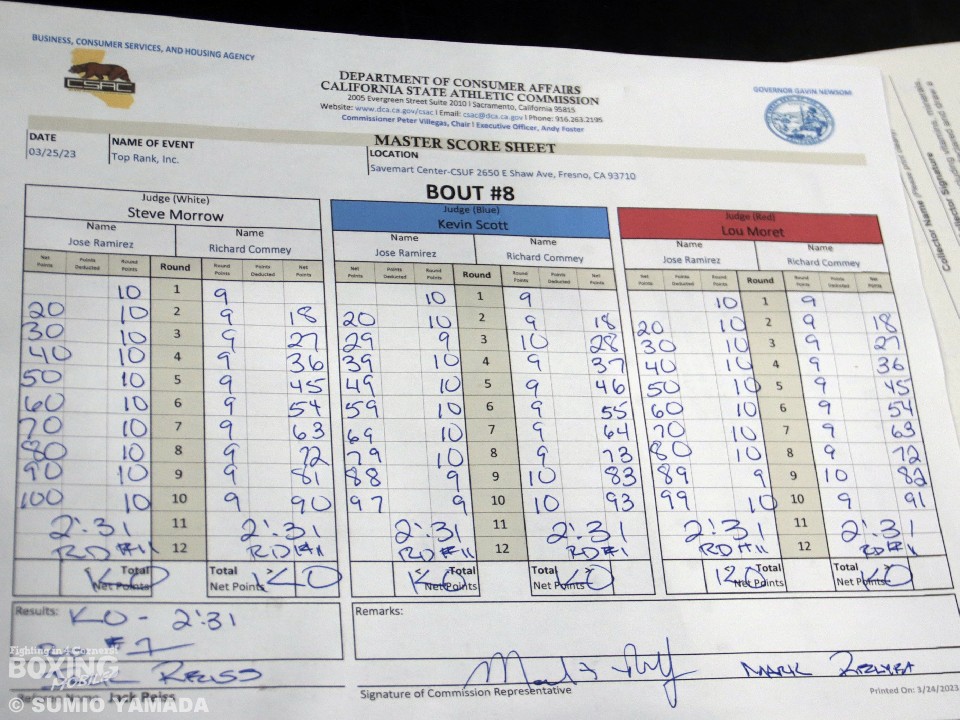 BUSINESS, CONSUMER SERVICES, AND HOUSING AGENCY
CSAC
DEPARTMENT OF CONSUMER AFFAIRS
CALIFORNIA STATE ATHLETIC COMMISSION
2005 Evergreen Street Suite 2010 | Sacramento, California 95815
Website: www.dca.ca.gov/csac | Email: csac@dca.ca.gov | Phone: 916.263.2195
Commissioner Peter Villegas, Chair | Executive Officer, Andy Foster
GOVERNOR GAVIN NEWSOM
MASTER SCORE SHEET
DATE NAME OF EVENT LOCATION
03/25/23 Top Rank, Inc. Savemart Center-CSUF 2650 E Shaw Ave, Fresno, CA 93710
BOUT #8
Judge (White) Judge (Blue) Judge (Red)
Steve Morrow Kevin Scott Lou Moret
Name Name Name Name Name Name
Jose Ramirez Richard Commey Jose Ramirez Richard Commey Jose Ramirez Richard Commey
Net Points Points Deducted Round Points Round Round Points Points Deducted Net Points Net Points Points Deducted Round Points Round Round Points Points Deducted Net Points Net Points Points Deducted Round Points Round Round Points Points Deducted Net Points
10 1 9 10 1 9 10 1 9
20 10 2 9 18 20 10 2 9 18 20 10 2 9 18
30 10 3 9 27 29 9 3 10 28 30 10 3 9 27
40 10 4 9 36 39 10 4 9 37 40 10 4 9 36
50 10 5 9 45 49 10 5 9 46 50 10 5 9 45
60 10 6 9 54 59 10 6 9 55 60 10 6 9 54
70 10 7 9 63 69 10 7 9 64 70 10 7 9 63
80 10 8 9 72 79 10 8 9 73 80 10 8 9 72
90 10 9 9 81 88 9 9 10 83 89 9 9 10 82
100 10 10 9 90 97 9 10 10 93 99 10 10 9 91
2:31 11 2:31 2:31 11 2:31 2:31 11 2:31
RD #11 12 RD #11 RD #11 12 RD #1 RD #11 12 RD #11
Total Net Points KO Total > Net Points KO < Total Net Points KO Total > Net Points KO Total Net Points KO Total > Net Points KO
Results: KO - 2:31
Remarks:
Jack Reiss
Signature of Commission Representative
Printed On: 3/24/2023
Fighting in 4 Corners!
BOXING
MOBILE
© SUMIO YAMADA